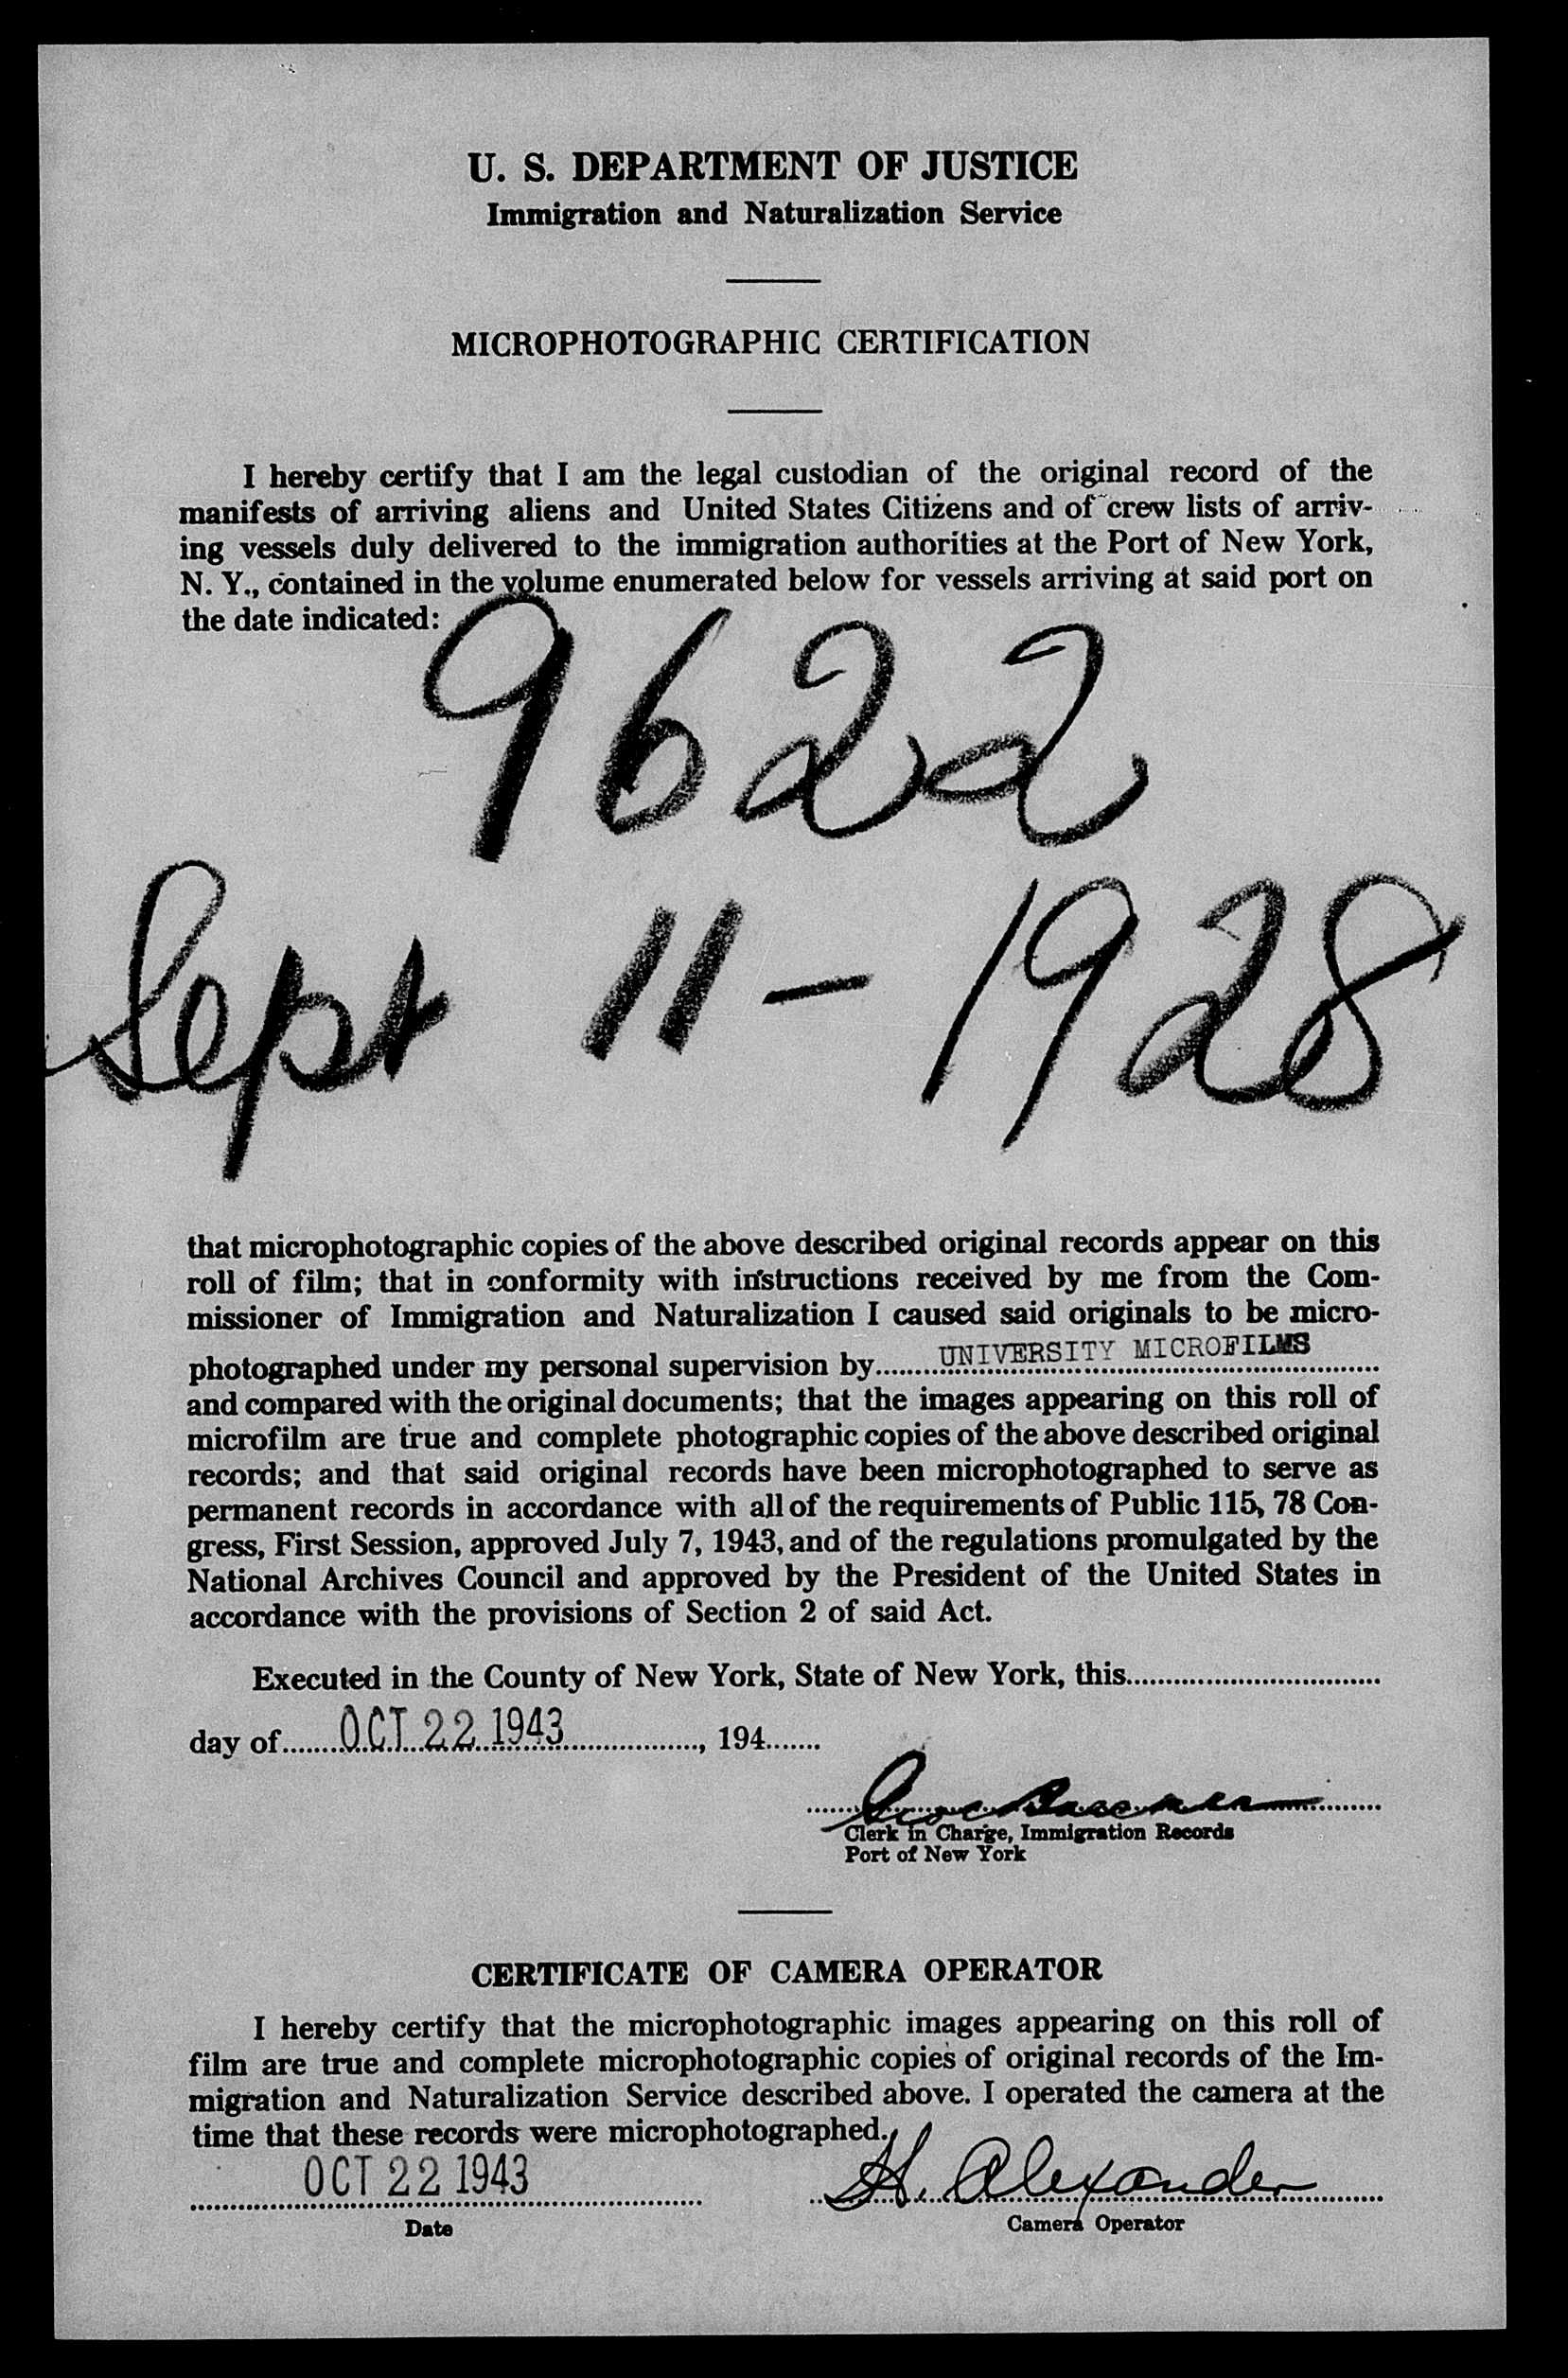 U. S. DEPARTMENT OF JUSTICE
Immigration and Naturalization Service
MICROPHOTOGRAPHIC CERTIFICATION
I hereby certify that I am the legal custodian of the original record of the
manifests of arriving aliens and United States Citizens and of crew lists of arriv-
ing vessels duly delivered to the immigration authorities at the Port of New York,
N. Y., contained in the volume enumerated below for vessels arriving at said port on
the date indicated:
9622
Sept 11 - 1928
that microphotographic copies of the above described original records appear on this
roll of film; that in conformity with instructions received by me from the Com-
missioner of Immigration and Naturalization I caused said originals to be micro-
photographed under my personal supervision by UNIVERSITY MICROFILMS
and compared with the original documents; that the images appearing on this roll of
microfilm are true and complete photographic copies of the above described original
records; and that said original records have been microphotographed to serve as
permanent records in accordance with all of the requirements of Public 115, 78 Con-
gress, First Session, approved July 7, 1943, and of the regulations promulgated by the
National Archives Council and approved by the President of the United States in
accordance with the provisions of Section 2 of said Act.
Executed in the County of New York, State of New York, this
day of OCT 22 1943, 194
Clerk in Charge, Immigration Records
Port of New York
CERTIFICATE OF CAMERA OPERATOR
I hereby certify that the microphotographic images appearing on this roll of
film are true and complete microphotographic copies of original records of the Im-
migration and Naturalization Service described above. I operated the camera at the
time that these records were microphotographed.
OCT 22 1943 H. Alexander
Date Camera Operator